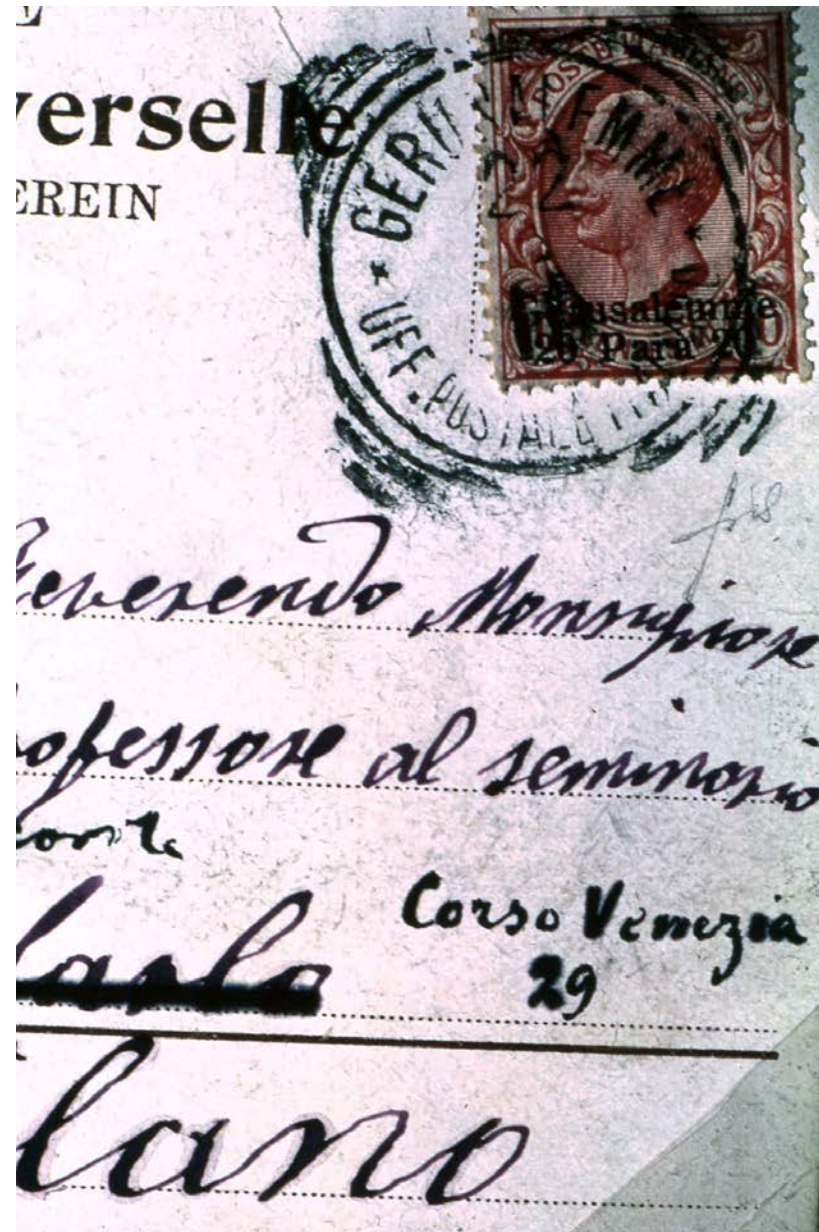 verselle
EREIN
POSTE ITALIANE
GERUSALEMME
UFF. POSTALE
Gerusalemme
20 Para 20
Reverendo Monsignore
ofessore al seminario
Corso Venezia
29
lano